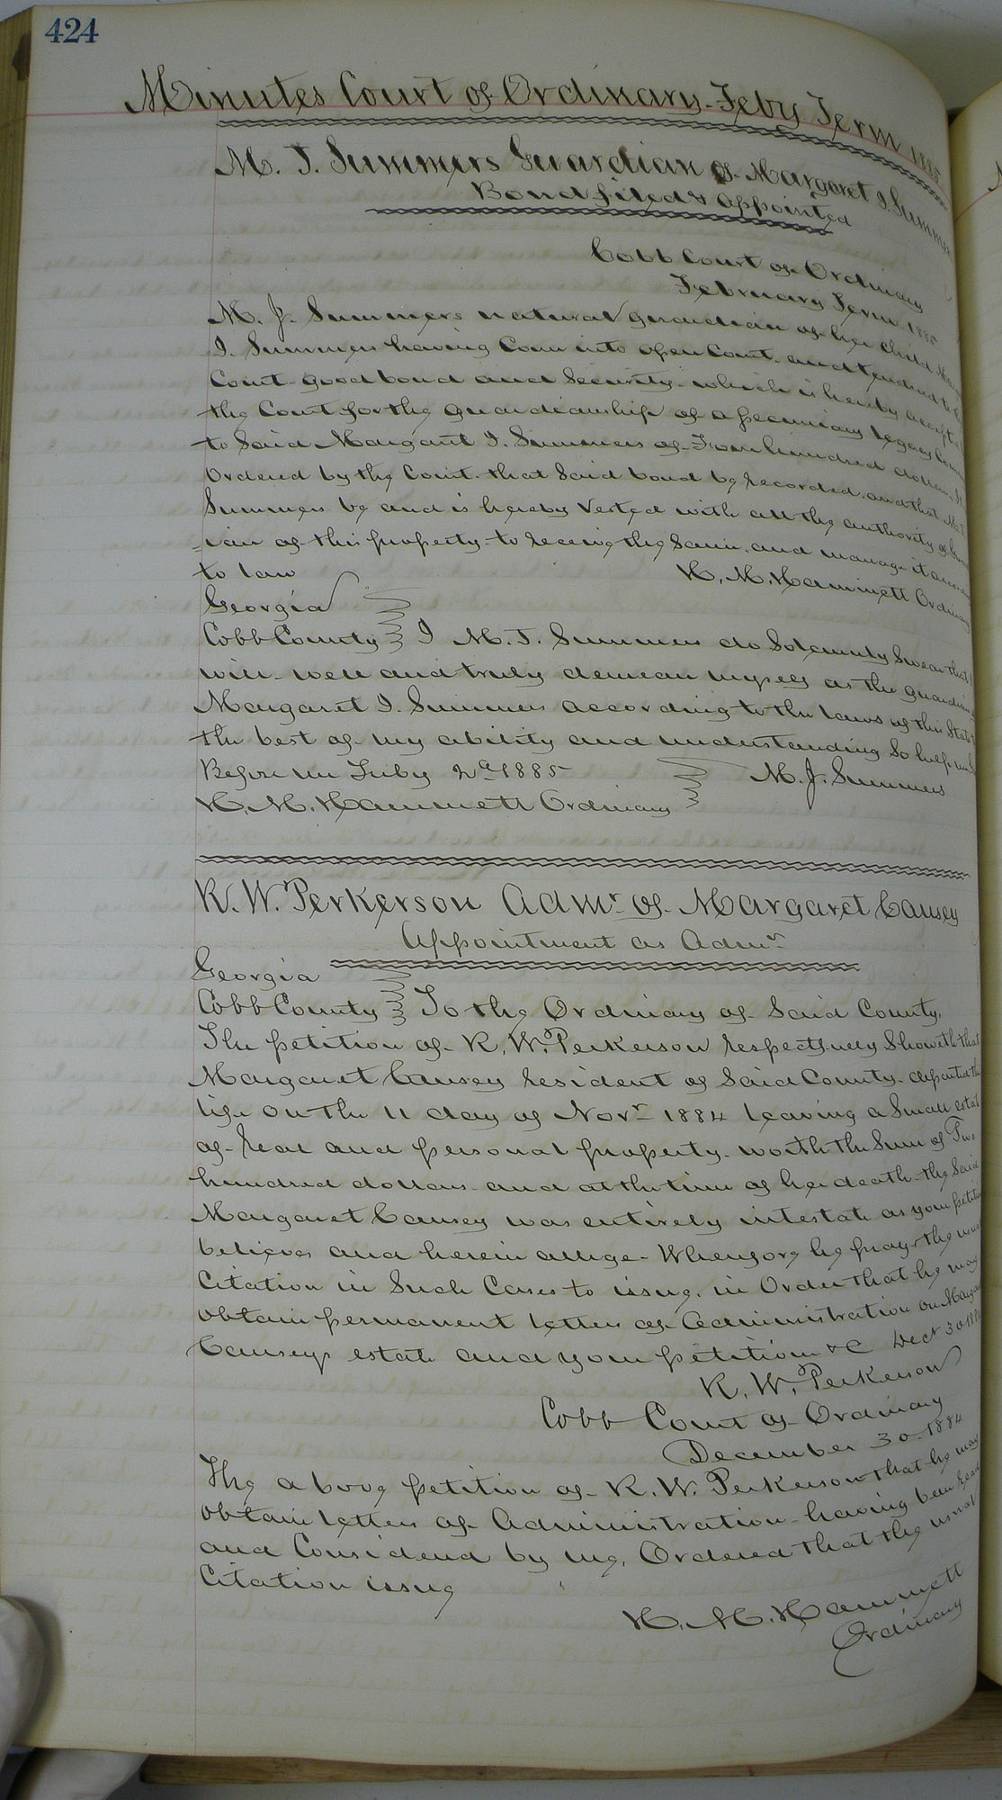 424
Minutes Court of Ordinary Feby Term 1885
M. J. Summers Guardian of Margaret I. Summers
Bond filed & appointed
Cobb Court of Ordinary
February Term 1885
M. J. Summers natural guardian of her child
I. Summers having Come into open Court and tendered to
Court good bond and Security which is hereby accepted
the Court for the guardianship of a pecuniary legacy
to Said Margaret I. Summers of Four hundred dollars
Ordered by the Court that Said bond be recorded and that M. J.
Summers be and is hereby Vested with all the authority of
ian of this property to receive the Same and manage it according
to law H. M. Hammett Ordinary
Georgia
Cobb County I M. J. Summers do Solemnly Swear that I
will well and truly demean myself as the guardian
Margaret I. Summers according to the laws of this State to
the best of my ability and understanding So help me
Before me Feby 2d 1885 M. J. Summers
H. M. Hammett Ordinary
R. W. Perkerson Admr of Margaret Causey
appointment as Admr
Georgia
Cobb County To the Ordinary of Said County.
The petition of R. W. Perkerson respectfully Showeth that
Margaret Causey resident of Said County departed this
life on the 11 day of Novr 1884 leaving a Small estate
of real and personal property worth the Sum of Two
hundred dollars and at the time of her death the Said
Margaret Causey was entirely intestate as your petitioner
believes and herein allege Wherefore he prays the usual
Citation in Such Cases to issue in Order that he may
obtain permanent letters of administration on Margaret
Causeys estate and your petitioner &C Dect 30 1884
R. W. Perkerson
Cobb Court of Ordinary
December 30 1884
The above petition of R. W. Perkerson that he may
obtain letters of Administration having been read
and Considered by me, Ordered that the usual
Citation issue
H. M. Hammett
Ordinary